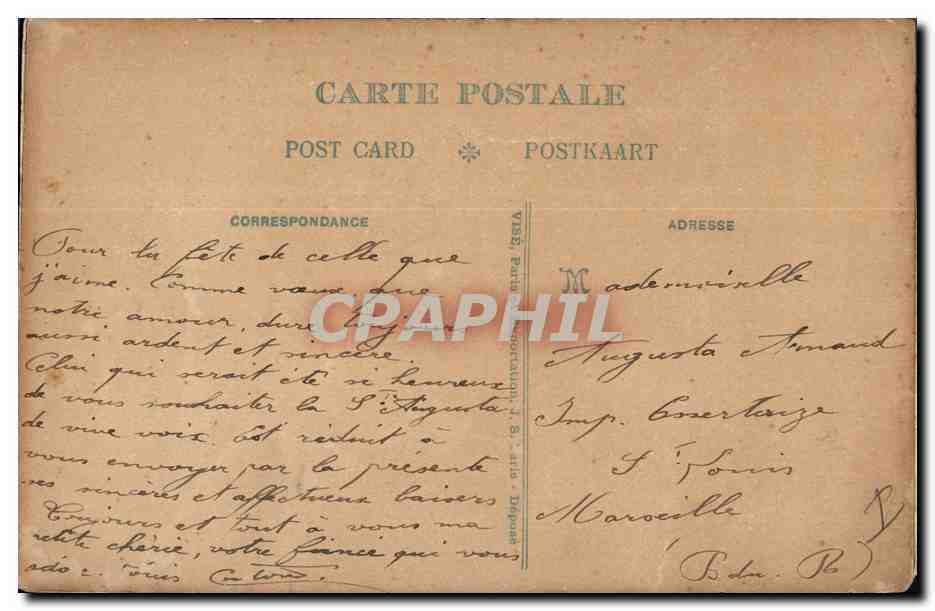 CARTE POSTALE
POST CARD POSTKAART
CORRESPONDANCE
Pour la fête de celle que
j'aime. Comme vœux que
notre amour, dure toujours
aussi ardent et sincère.
Celui qui serait été si heureux
de vous souhaiter la Ste Augusta
de vive voix. Est réduit à
vous envoyer par la présente
ses sincères et affectueux baisers
Toujours et tout à vous ma
petite chérie, votre fiancé qui vous
adore. Louis
VISÉ, Paris Exportation. J. S. Paris - Déposé
ADRESSE
Mademoiselle
Augusta Arnaud
Imp.
St Louis
Marseille
(B du R)
CPAPHIL